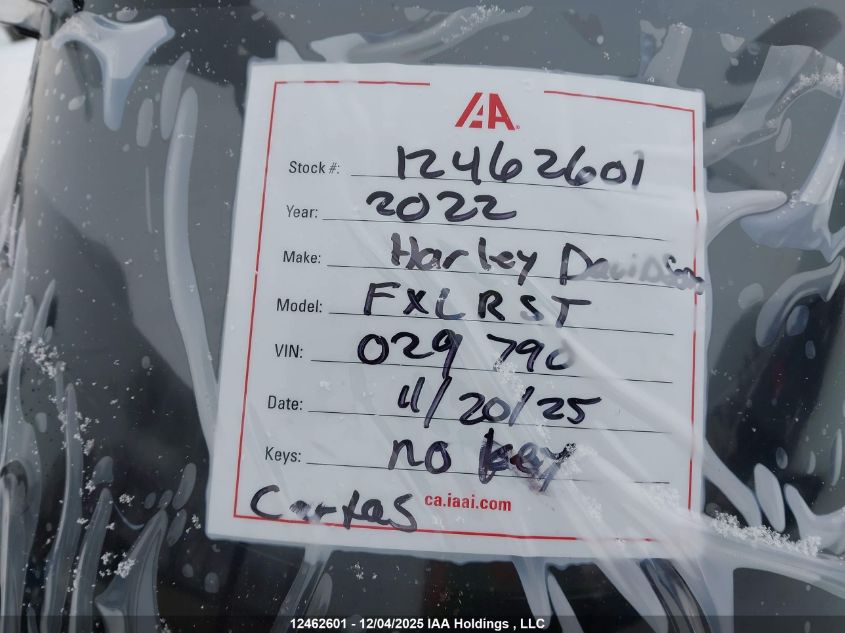 IAA
Stock #: 12462601
Year: 2022
Make: Harley Davidson
Model: FXLRST
VIN: 029 790
Date: 11/20/25
Keys: no key
Cartas
ca.iaai.com
12462601 - 12/04/2025 IAA Holdings , LLC